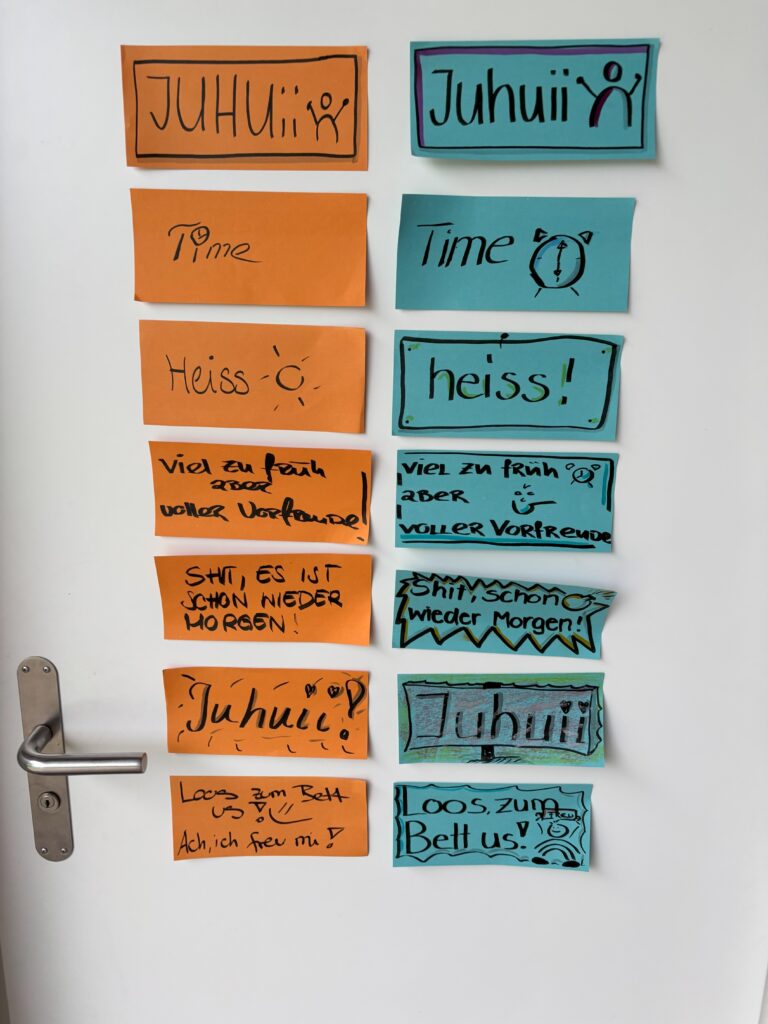 JUHUii
Juhuii
Time
Time
Heiss
heiss!
Viel zu früh
aber
voller Vorfreude
Viel zu früh
aber
voller Vorfreude
SHIT, ES IST
SCHON WIEDER
MORGEN!
Shit, schon
wieder Morgen!
Juhuii!
Juhuii
Loos zum Bett
us!
Ach, ich freu mi!
Loos, zum
Bett us!